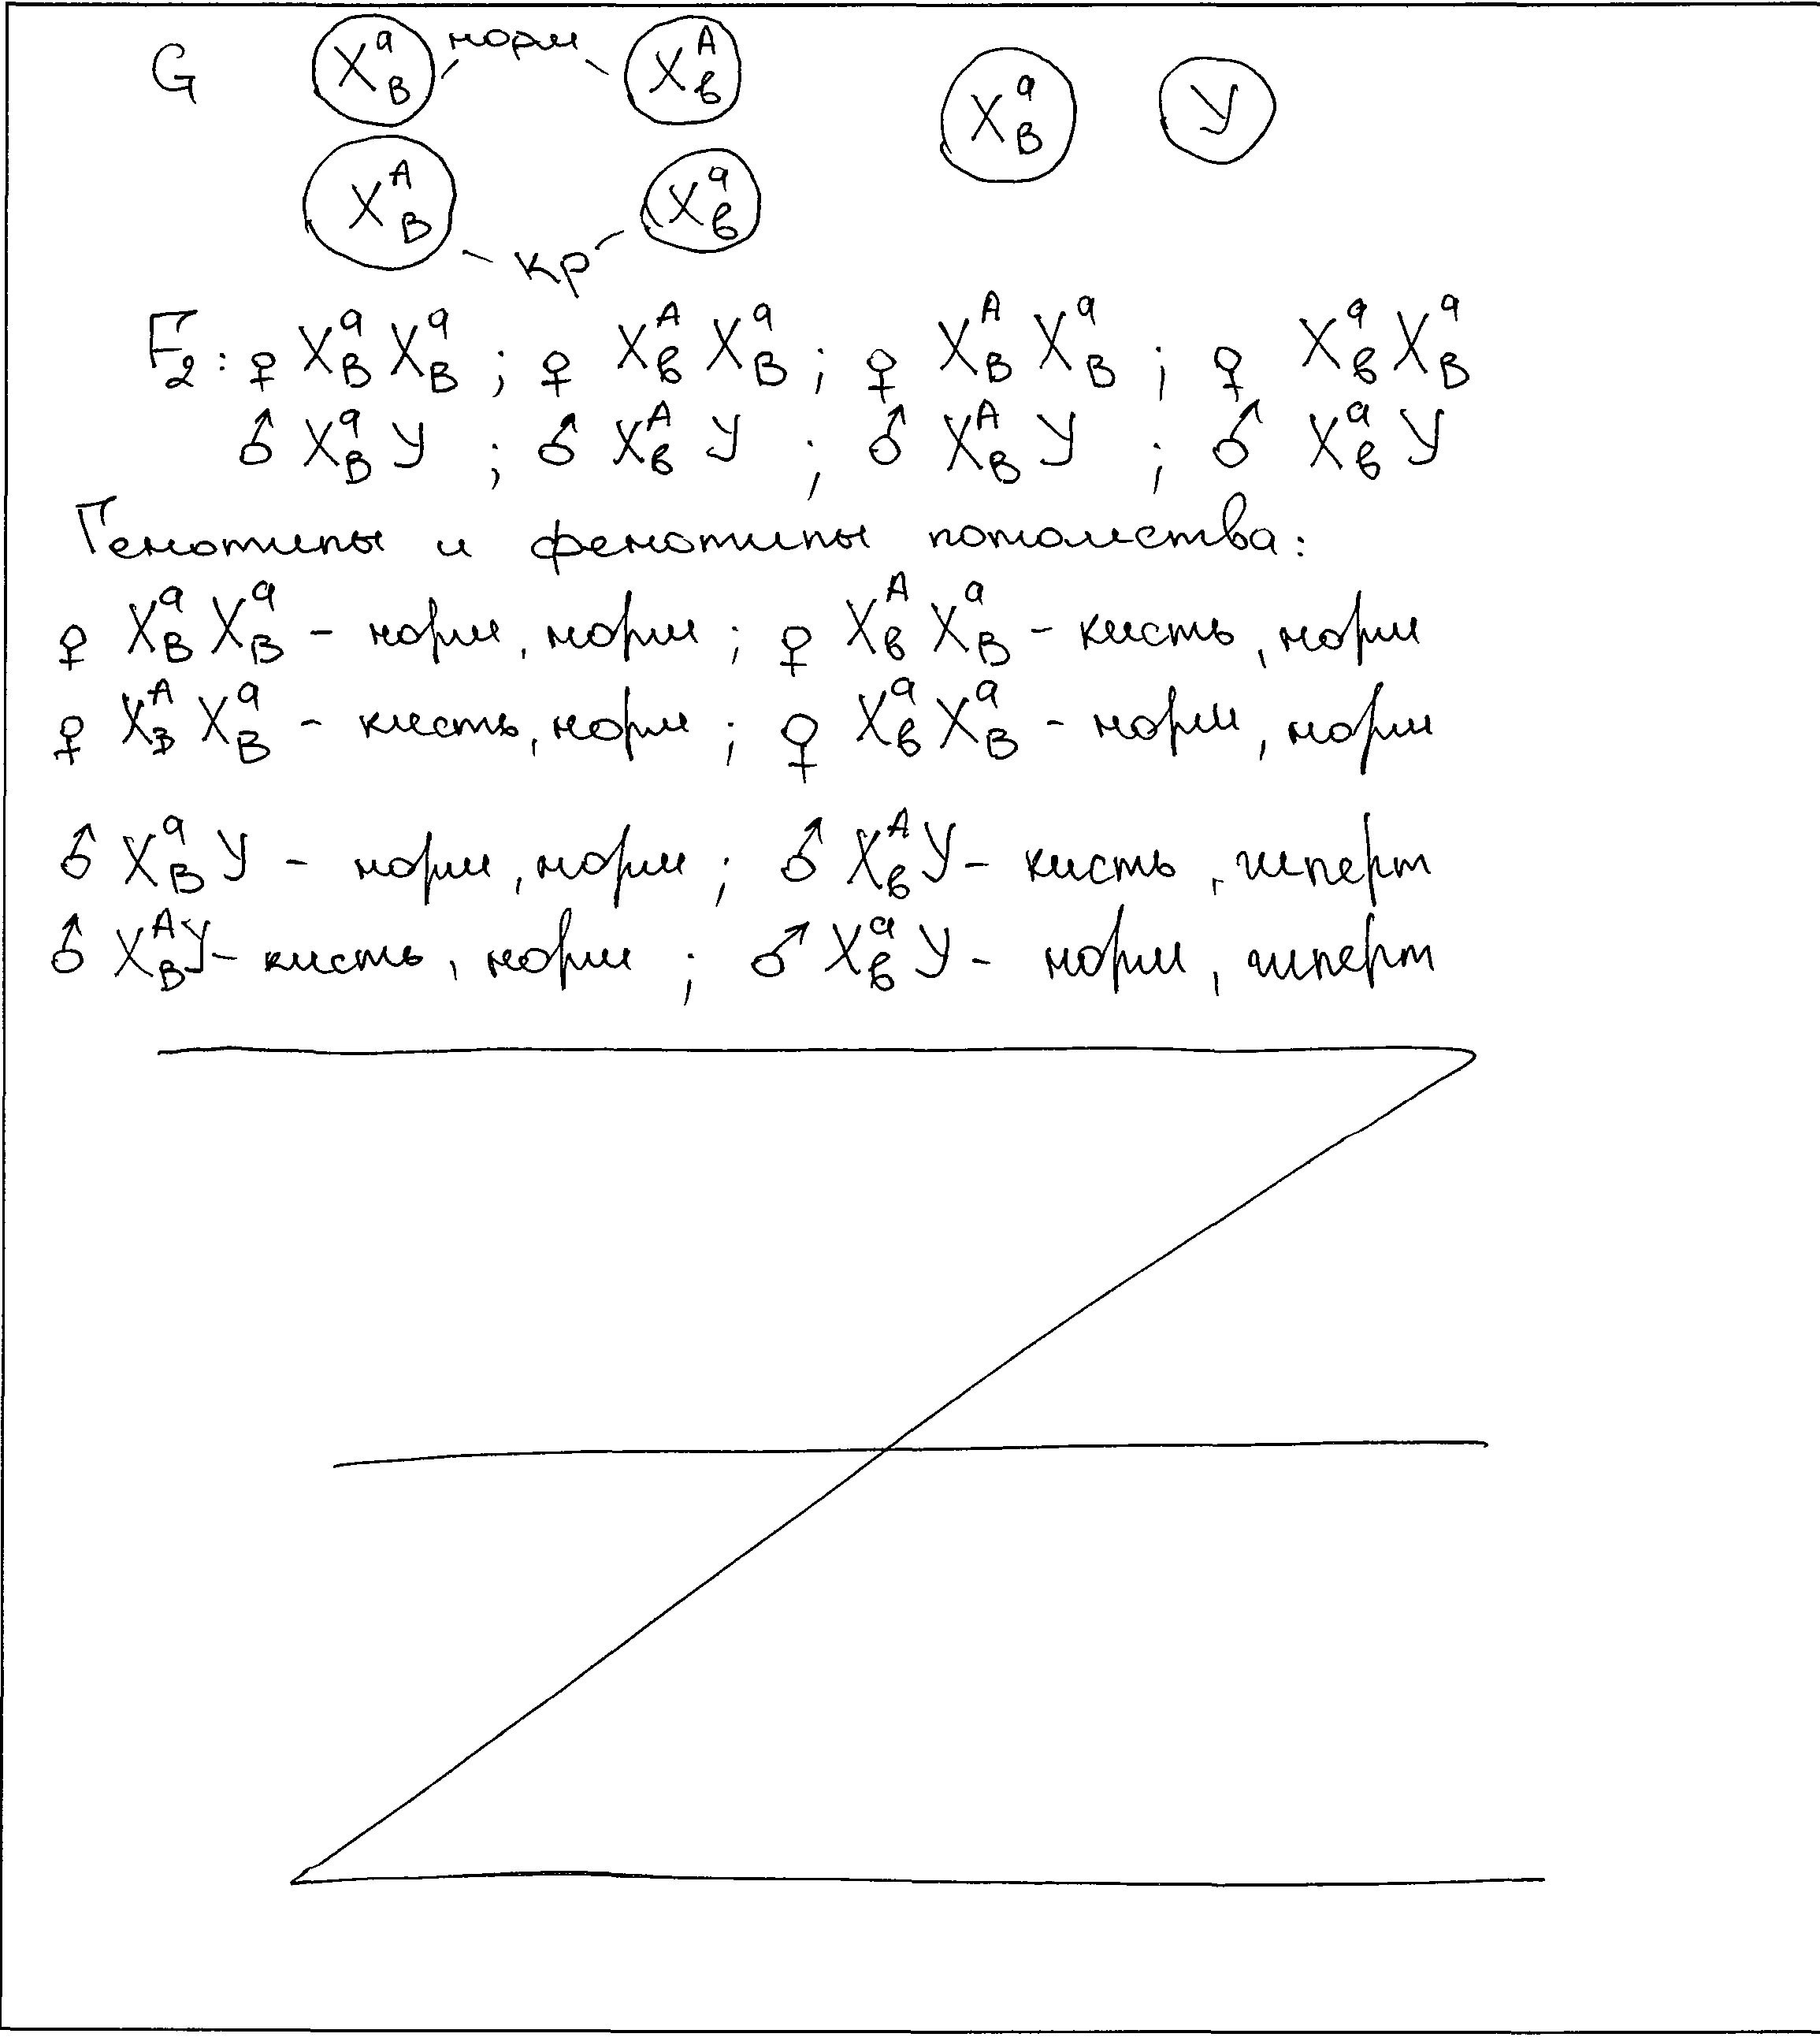 G X^a_B норм X^A_в X^a_B У
X^A_B кр X^a_в
F₂: ♀ X^a_B X^a_B ; ♀ X^A_в X^a_B ; ♀ X^A_B X^a_B ; ♀ X^a_в X^a_B
♂ X^a_B У ; ♂ X^A_в У ; ♂ X^A_B У ; ♂ X^a_в У
Генотипы и фенотипы потомства:
♀ X^a_B X^a_B - норм, норм ; ♀ X^A_в X^a_B - кисть, норм
♀ X^A_B X^a_B - кисть, норм ; ♀ X^a_в X^a_B - норм, норм
♂ X^a_B У - норм, норм ; ♂ X^A_в У - кисть, гиперт
♂ X^A_B У - кисть, норм ; ♂ X^a_в У - норм, гиперт